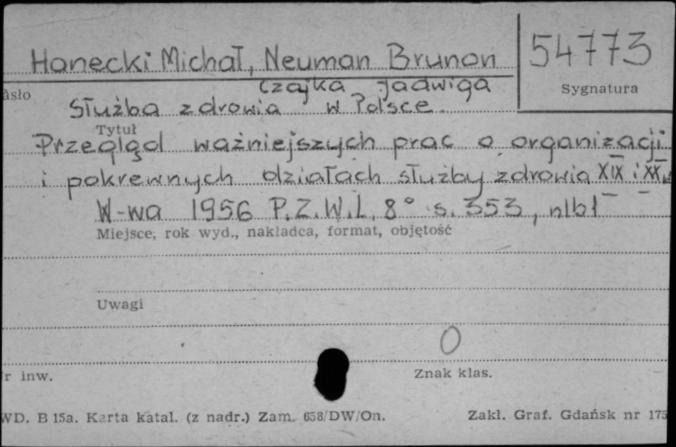 Hanecki Michał, Neuman Brunon
54773
Czajka Jadwiga
asło
Sygnatura
Służba zdrowia w Polsce.
Tytuł
Przegląd ważniejszych prac o organizacji
i pokrewnych działach służby zdrowia XIX i XX w
W-wa 1956 P.Z.W.L. 8° s. 353, nlb1
Miejsce, rok wyd., nakładca, format, objętość
Uwagi
0
r inw.
Znak klas.
WD. B 15a. Karta katal. (z nadr.) Zam. 658/DW/On.
Zakl. Graf. Gdańsk nr 175